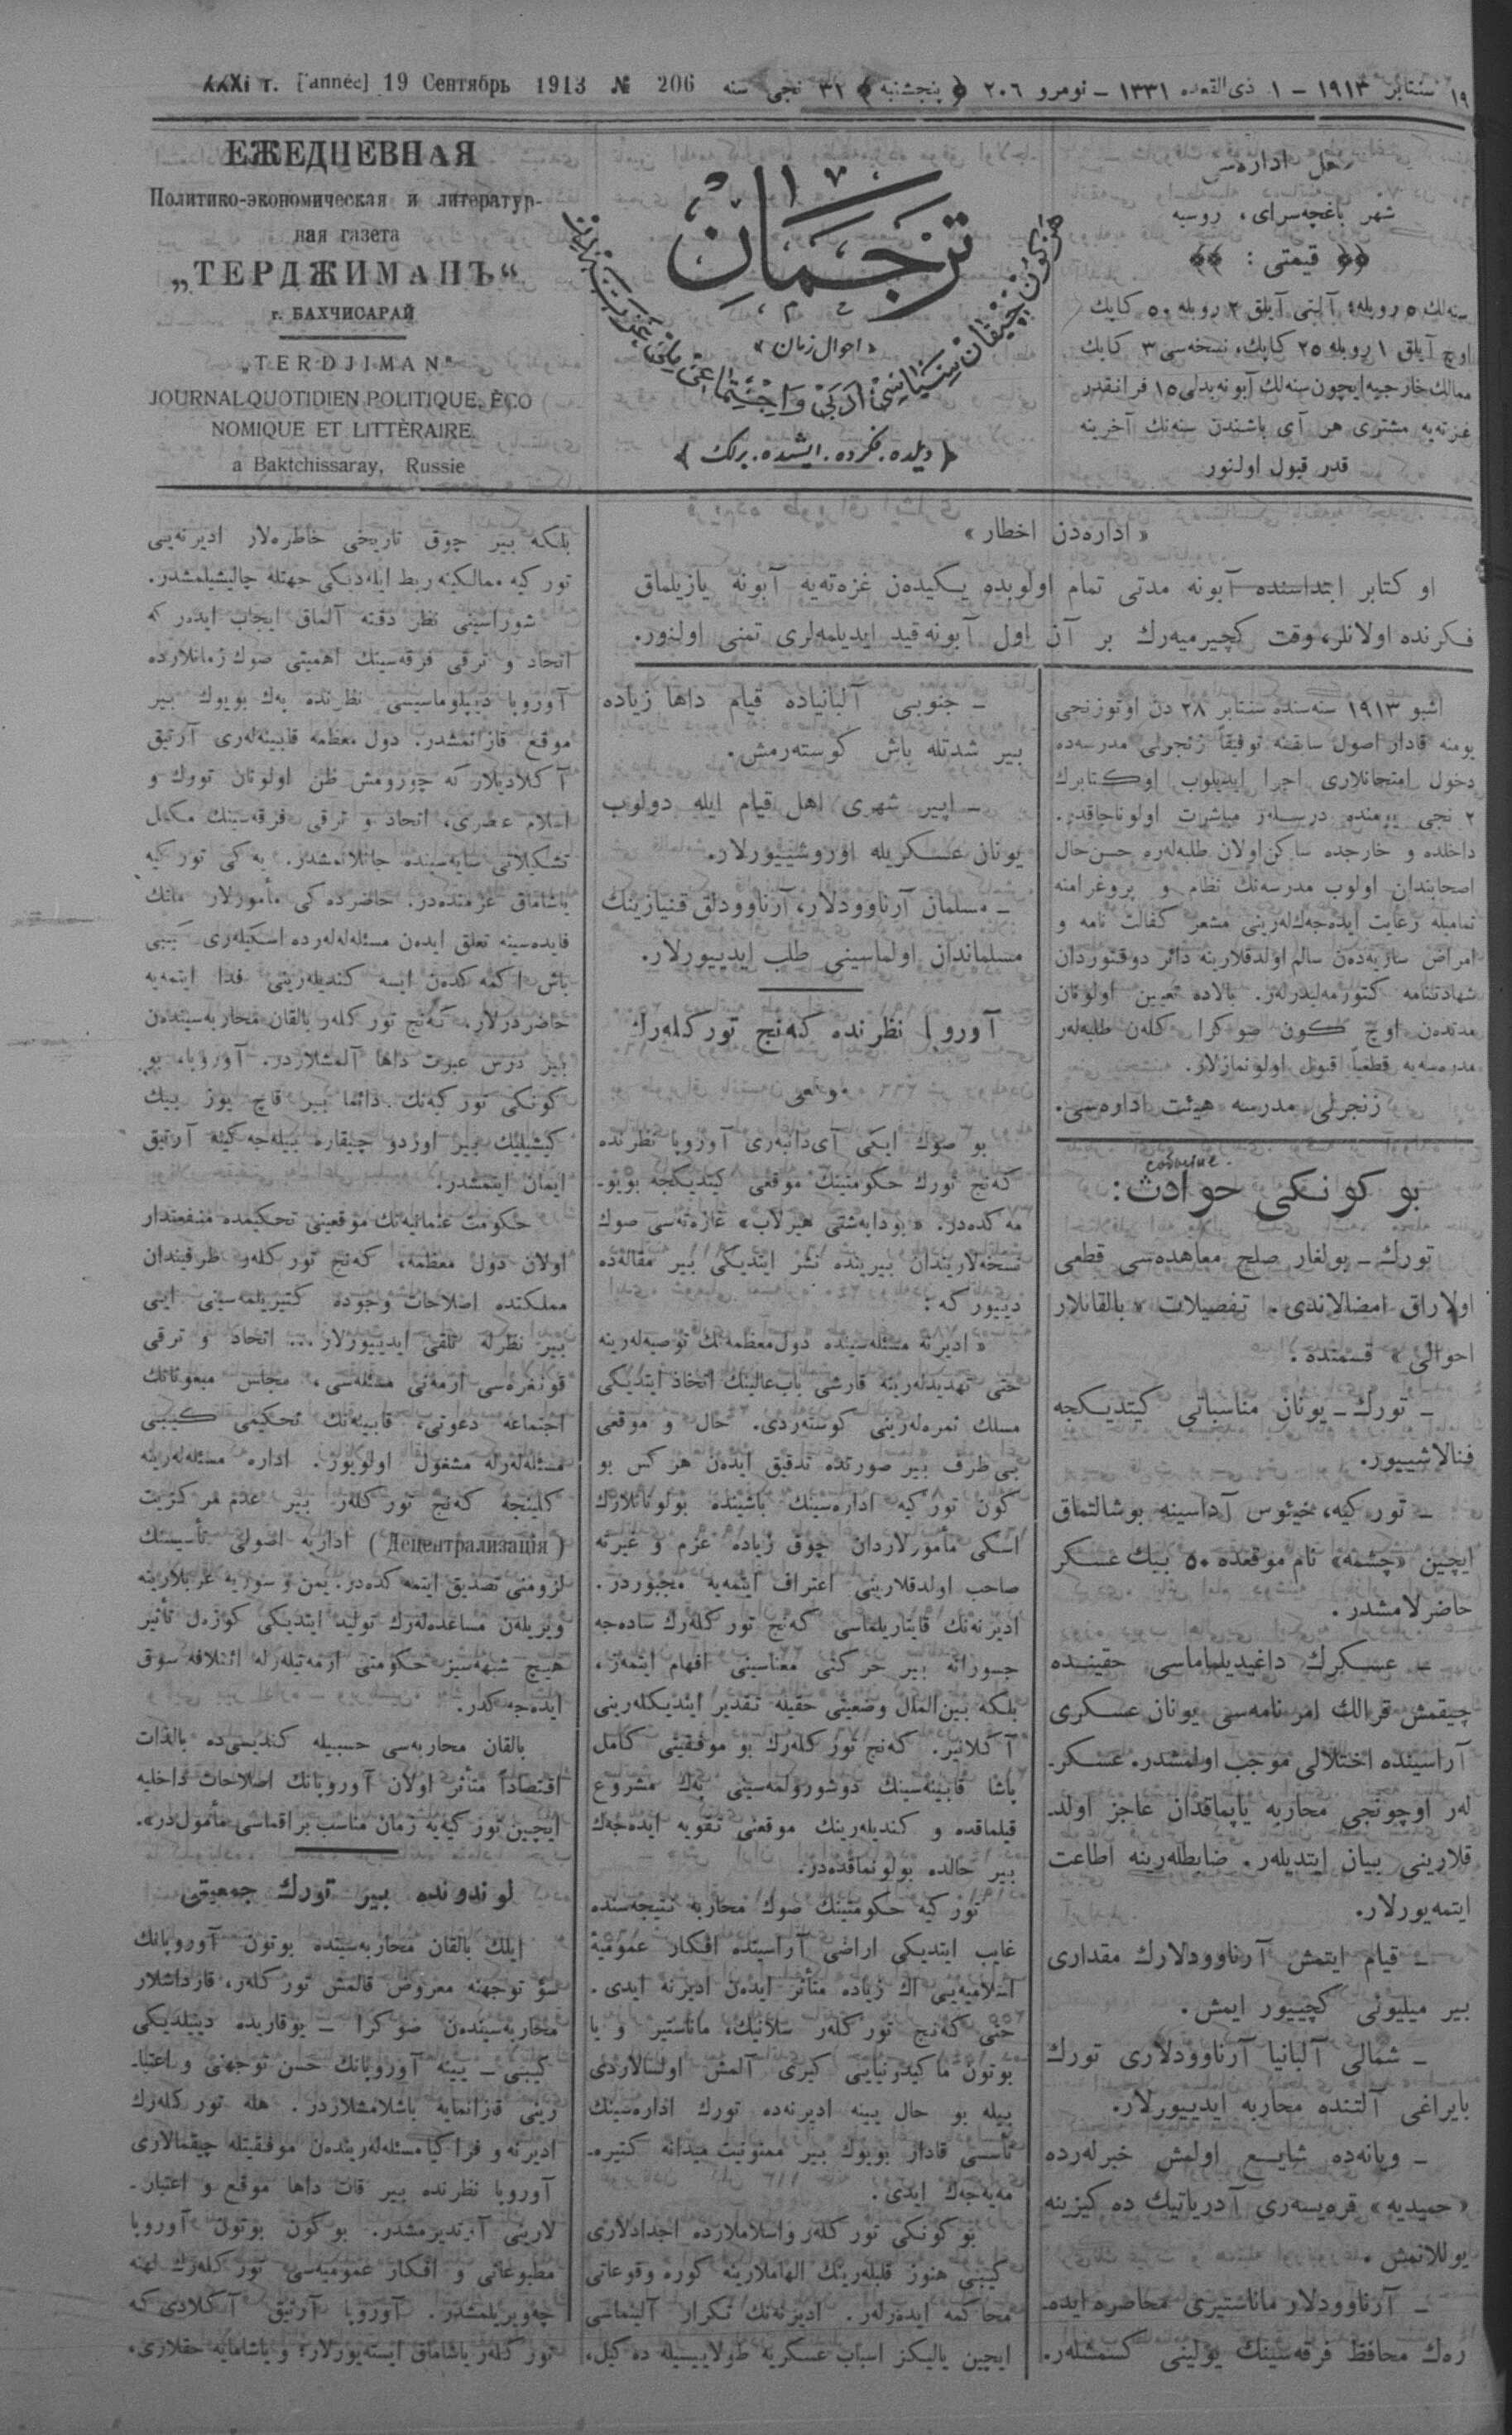 XXXI г. [année] 19 Сентябрь 1913 № 206
١٩ سنتابر ١٩١٣ – ١ ذی‌القعده ١٣٣١ – نومرو ٢٠٦ ﴿ پنجشنبه ﴾ ٣١ نجی سنه
ЕЖЕДНЕВНАЯ
Политико-экономическая и литератур-
ная газета
„ТЕРДЖИМАНЪ“
г. БАХЧИСАРАЙ
„TERDJIMAN“
JOURNAL QUOTIDIEN POLITIQUE, ÈCO
NOMIQUE ET LITTÈRAIRE
a Baktchissaray, Russie
ترجمان
« احوال زمان »
﴿ دیلده. فکرده. ایشده. برلك ﴾
محل اداره‌سی
شهر باغچه‌سرای، روسیه
قیمتی :
سنه‌لك ٥ روبله، آلتی آیلق ٢ روبله ٥٠ کاپك
اوچ آیلق ١ روبله ٢٥ کاپك، نسخه‌سی ٣ کاپك
ممالك خارجیه ایچون سنه‌لك آبونه بدلی ١٥ فرانقدر
غزته‌یه مشتری هر آی باشندن سنه‌نك آخرینه
قدر قبول اولنور
« اداره‌دن اخطار »
او کتابر ابتداسنده آبونه مدتی تمام اولوبده یکیدەن غزەتەیە آبونه یازیلماق
فکرنده اولانلر، وقت کچیرمیەرك بر آن اول آبونه قید ایدیلمەلری تمنی اولنور.
اشبو ١٩١٣ سنه‌سنده سنتابر ٢٨ دن اوتوزنجی
یومنه قادار اصول سابقنه توفیقاً زنجرلی مدرسه‌ده
دخول امتحانلاری اجرا ایدیلوب اوکتابرك
٢ نجی یومنده درسلەر مباشرت اولوناجاقدر.
داخلده و خارجده ساکن اولان طلبەلرە حسن حال
اصحابندان اولوب مدرسه‌نك نظام و پروغرامنه
تمامیله رعایت ایدەجەك‌لەرینی مشعر کفالت نامه و
امراض ساریەدەن سالم اولدقلارینه دائر دوقتوردان
شهادتنامه کتورمەلیدرلەر. بالاده تعیین اولونان
مدتدەن اوچ کون صوکرا کلەن طلبەلەر
مدرسه‌یه قطعیاً قبول اولونمازلار.
زنجرلی مدرسه هیئت اداره‌سی.
событие.
بو کونکی حوادث:
تورك – بولغار صلح معاهده‌سی قطعی
اولاراق امضالاندی. تفصیلات « بالقانلار
احوالی » قسمنده.
– تورك – یونان مناسباتی کیتدیکجه
فنالاشییور.
– تورکیه، خیئوس آداسینه بوشالتماق
ایچین «چشمه» نام موقعده ٥٠ بیك عسکر
حاضرلامشدر.
– عسکرك داغیدیلماماسی حقینده
چیقمش قرالك امرنامه‌سی یونان عسکری
آراسینده اختلالی موجب اولمشدر. عسکر-
لەر اوچونجی محاربه یاپماقدان عاجز اولد-
قلارینی بیان ایتدیلەر. ضابطلەرینه اطاعت
ایتمەیورلار.
– قیام ایتمش آرناوودلارك مقداری
بیر میلیونی کچییور ایمش.
– شمالی آلبانیا آرناوودلاری تورك
بایراغی آلتنده محاربه ایدییورلار.
– ویانەده شایع اولمش خبرلەرده
«حمیدیه» قرەیسەری آدریاتیك ده کیزینه
یوللانمش.
– آرناوودلار ماناستیری محاصره ایدە-
رەك محافظ فرقه‌سینك یولینی کسمشلەر.
– جنوبی آلبانیاده قیام داها زیاده
بیر شدتله باش کوستەرمش.
– اپیر شهری اهل قیام ایله دولوب
یونان عسکریله اوروشییورلار.
– مسلمان آرناوودلار، آرناوودلق قنیازینك
مسلماندان اولماسینی طلب ایدییورلار.
آوروپا نظرنده کەنج تورکلەرك
موقعی
بو صوك ایکی آی‌دانبەری آوروپا نظرنده
کەنج تورك حکومتینك موقعی کیتدیکجه بویو-
مەکدەدر. « بوداپەشتی هیرلاپ » غازەتەسی صوك
نسخەلاریندان بیرینده نشر ایتدیکی بیر مقالەده
دییور که:
« ادیرنه مسئلەسینده دول معظمەنك توصیەلەرینه
حتی تهدیدلەرینه قارشی باب‌عالینك اتخاذ ایتدیکی
مسلك ثمرەلەرینی کوستەردی. حال و موقعی
بی‌طرف بیر صورتده تدقیق ایدەن هرکس بو
کون تورکیه ادارەسینك باشینده بولونانلارك
اسکی مأمورلاردان چوق زیاده عزم و غیرته
صاحب اولدقلارینی اعتراف ایتمەیه مجبوردر.
ادیرنەنك قایتاریلماسی کەنج تورکلەرك سادەجه
جسورانه بیر حرکتی معناسینی افهام ایتمەز،
بلکه بین‌الملل وضعیتی حقیله تقدیر ایتدیکلەرینی
آکلاتیر. کەنج تورکلەرك بو موفقیتی کامل
پاشا قابینەسینك دوشورولمەسینی پەك مشروع
قیلماقده و کندیلەرینك موقعنی تقویه ایدەجەك
بیر حالده بولونماقدەدر.
تورکیه حکومتینك صوك محاربه نتیجەسنده
غایب ایتدیکی اراضی آراسینده افکار عمومیهٔ
اسلامیەیی اك زیاده متأثر ایدەن ادیرنه ایدی.
حتی کەنج تورکلەر سلانیك، ماناستیر و یا
بوتون ماکیدونیایی کیری آلمش اولسالاردی
بیله بو حال یینه ادیرنەده تورك ادارەسینك
تأسسی قادار بویوك بیر ممنونیت میدانه کتیرە-
مەیەجەك ایدی.
بو کونکی تورکلەر و اسلاملارده اجدادلاری
کیبی هنوز قلبلەرینك الهاملارینه کوره وقوعاتی
محاکمه ایدەرلەر. ادیرنەنك تکرار آلینماسی
ایچین یالیکز اسباب عسکریه طولاییسیله دەکیل،
بلکه بیر چوق تاریخی خاطرەلار ادیرنەیی
تورکیه ممالکینه ربط ایلەدیکی جهتله چالیشیلمشدر.
شوراسینی نظر دقته آلماق ایجاب ایدەر که
اتحاد و ترقی فرقەسینك اهمیتی صوك زمانلارده
آوروپا دیپلوماسیسی نظرنده پەك بویوك بیر
موقع قازانمشدر. دول معظمه قابینەلەری آرتیق
آکلادیلار که چورومش ظن اولونان تورك و
اسلام عنصری، اتحاد و ترقی فرقەسینك مکمل
تشکیلاتی سایەسینده جانلانمشدر. یەکی تورکیه
یاشاماق عزمندەدر. حاضردەکی مأمورلار ملتك
فایدەسینه تعلق ایدەن مسئلەلەرده اسکیلەری کیبی
باش اکمەکدەن ایسه کندیلەرینی فدا ایتمەیه
حاضردرلار. کەنج تورکلەر بالقان محاربەسیندەن
بیر درس عبرت داها آلمشلاردر. آوروپا، بو
کونکی تورکیەنك دائما بیر قاچ یوز بیك
کیشیلیك بیر اوردو چیقاره بیلەجەکینه آرتیق
ایمان ایتمشدر.
حکومت عثمانیەنك موقعینی تحکیمده منفعتدار
اولان دول معظمه، کەنج تورکلەر طرفیندان
مملکتده اصلاحات وجوده کتیریلمەسینی ایی
بیر نظرله تلقی ایدییورلار... اتحاد و ترقی
قونغرەسی ارمەنی مسئلەسی، مجلس مبعوثانك
اجتماعه دعوتی، قابینەنك تحکیمی کیبی
مسئلەلەرله مشغول اولویور. اداره مسئلەلەرینه
کلینجه کەنج تورکلەر بیر عدم مرکزیت
(Децентрализація) اداریه اصولی تأسیسنك
لزومنی تصدیق ایتمەکدەدر. یمن و سوریه عربلارینه
ویریلەن مساعدەلەرك تولید ایتدیکی کوزەل تأثیر
هیچ شبهەسیز حکومتی ارمەنیلەرله ائتلافه سوق
ایدەجەکدر.
بالقان محاربەسی حسبیله کندیسی‌ده بالذات
اقتصاداً متأثر اولان آوروپانك اصلاحات داخلیه
ایچین تورکیەیه زمان مناسب براقماسی مأمول‌در».
لوندونده بیر تورك جمعیتی
ایلك بالقان محاربەسینده بوتون آوروپانك
سؤ توجهنه معروض قالمش تورکلەر، قارداشلار
محاربەسیندەن صوکرا – یوقاریده دییلدیکی
کیبی – یینه آوروپانك حسن توجهنی و اعتبا-
رینی قازانمایه باشلامشلاردر. هله تورکلەرك
ادیرنه و فراکیا مسئلەلەریندەن موفقیتله چیقمالاری
آوروپا نظرنده بیر قات داها موقع و اعتبار-
لارینی آرتدیرمشدر. بو کون بوتون آوروپا
مطبوعاتی و افکار عمومیەسی تورکلەرك لهنه
چەویریلمشدر. آوروپا آرتیق آکلادی که
تورکلەر یاشاماق ایستەیورلار؛ و یاشامایه حقلاری،